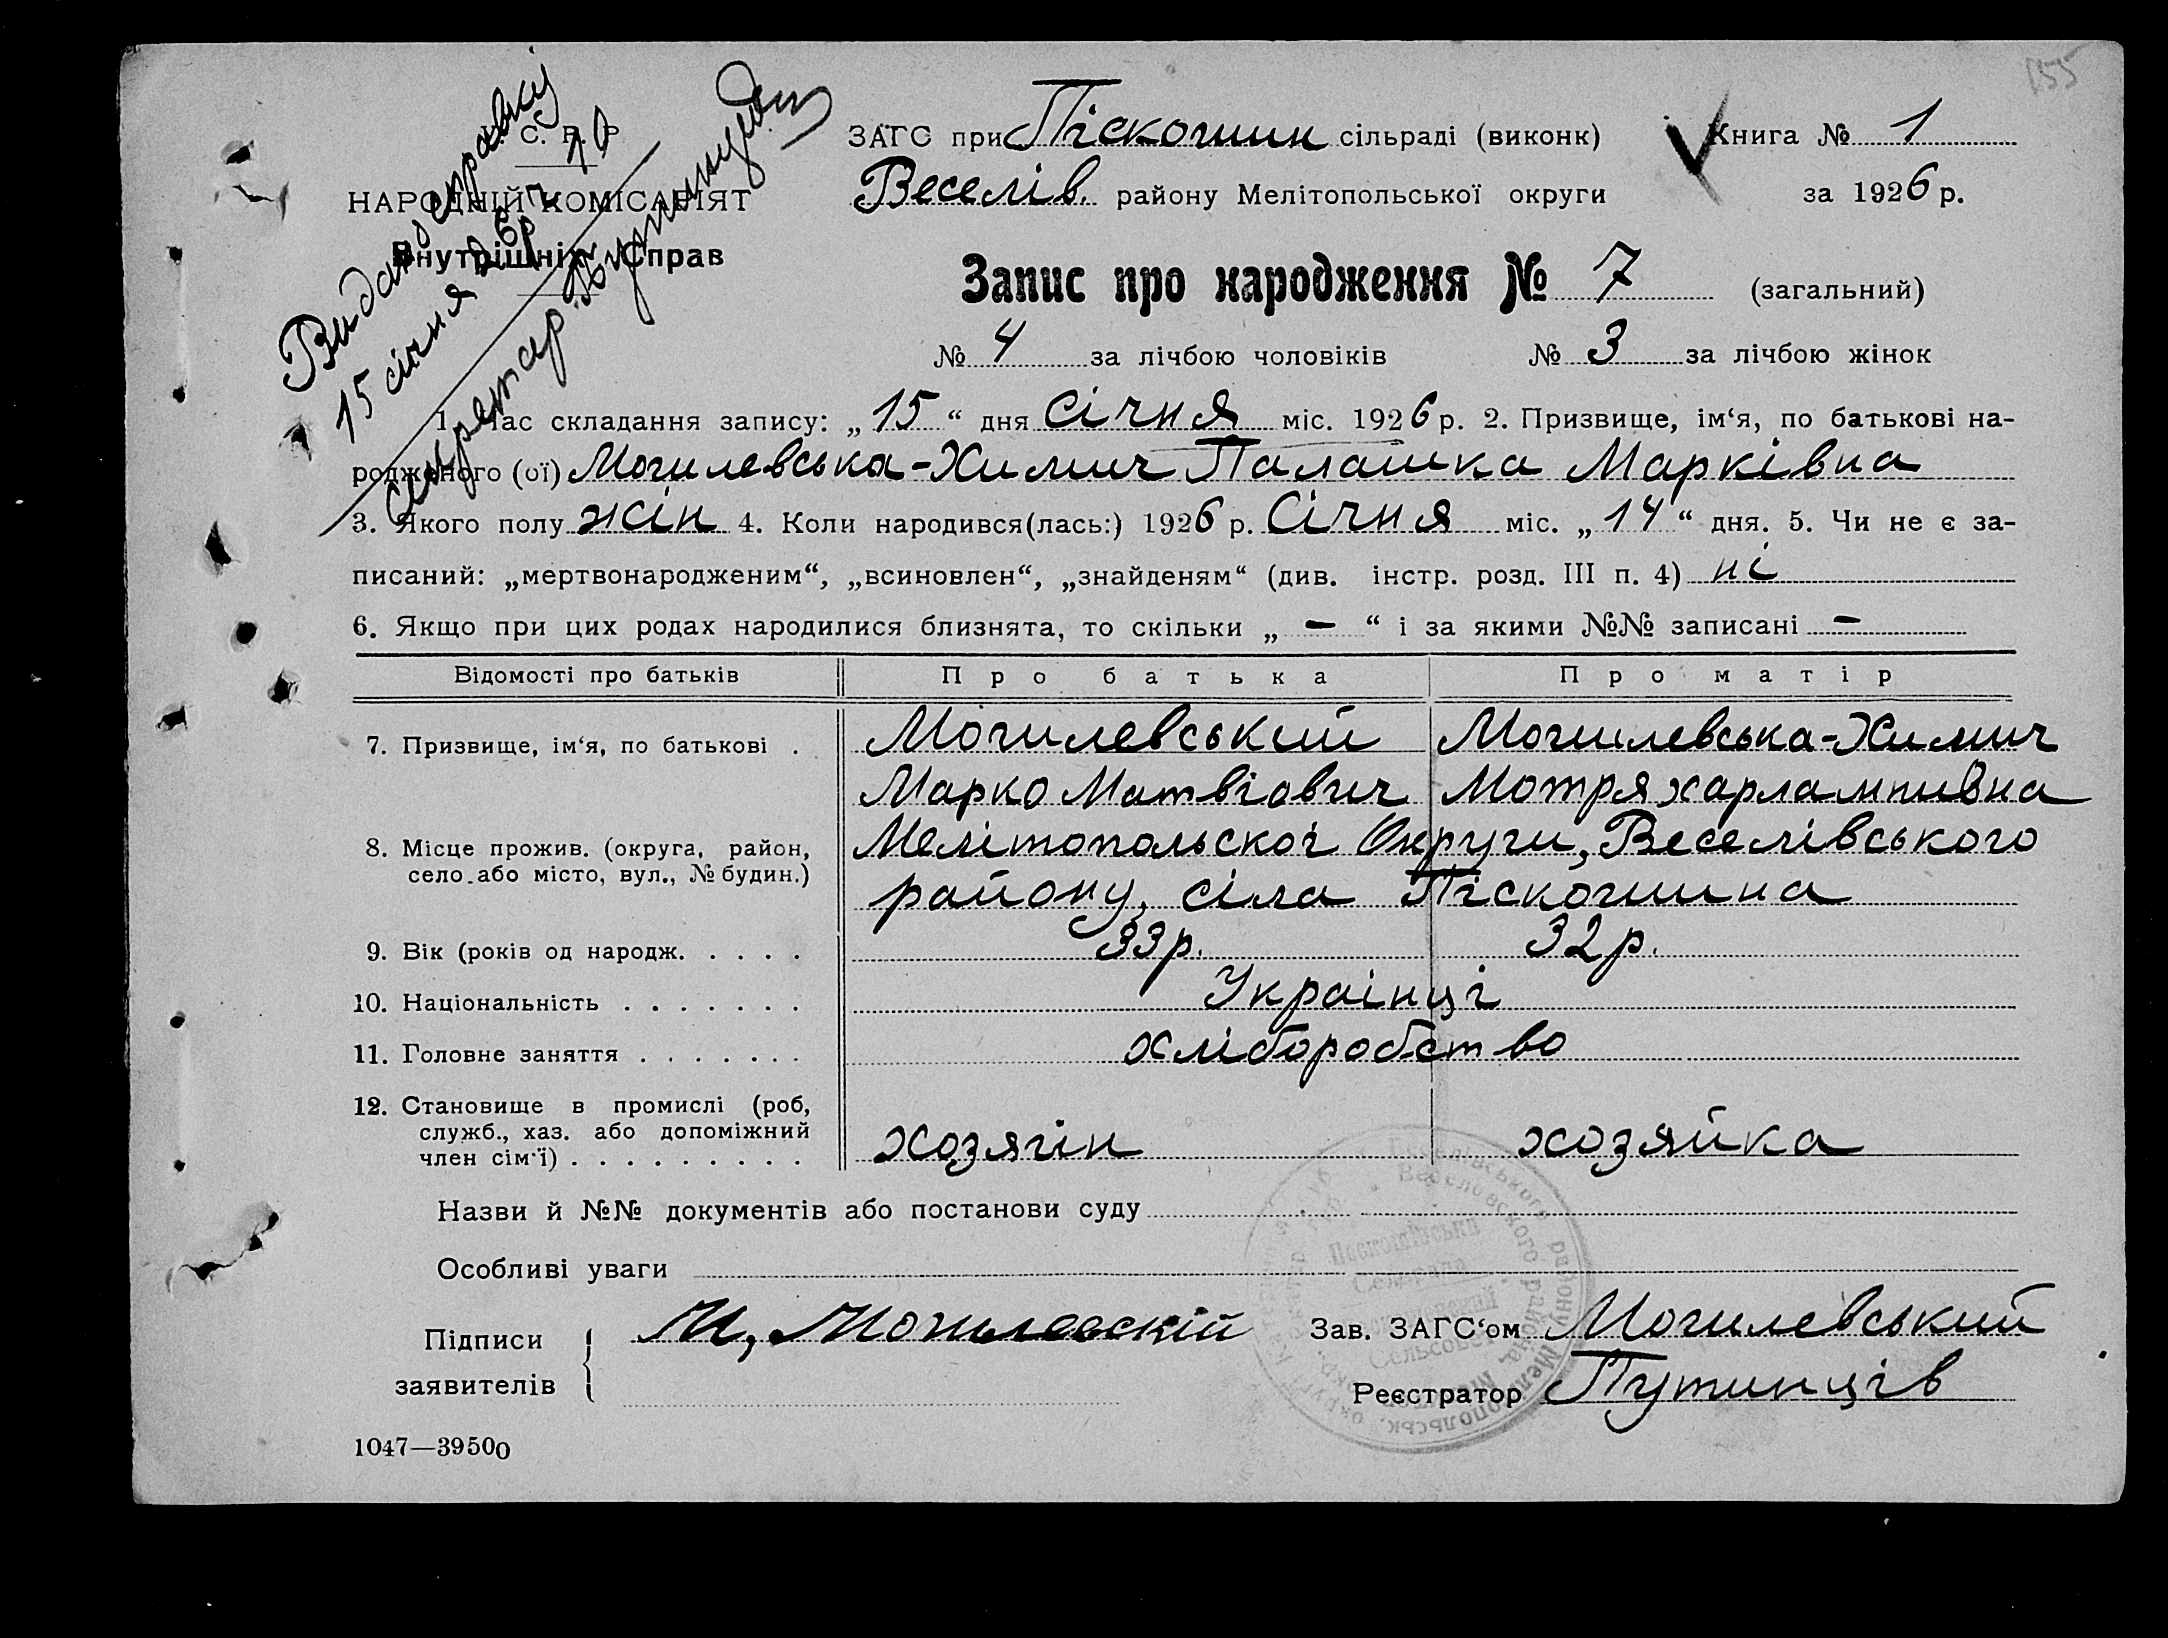 155
Видано справку
15 січня 26 р. ч 20
Секретар Путинцев
С. Р. Р.
НАРОДНІЙ КОМІСАРІЯТ
Внутрішніх Справ
ЗАГС при Піскошин сільраді (виконк) Книга № 1
Веселів. району Мелітопольської округи за 1926 р.
Запис про народження № 7 (загальний)
№ 4 за лічбою чоловіків № 3 за лічбою жінок
1. Час складання запису: „15“ дня Січня міс. 1926 р. 2. Призвище, ім‘я, по батькові на-
родженого (ої) Могилевська-Химич Палашка Марківна
3. Якого полу жін 4. Коли народився(лась:) 1926 р. Січня міс. „14“ дня. 5. Чи не є за-
писаний: „мертвонародженим“, „всиновлен“, „знайденям“ (див. інстр. розд. III п. 4) ні
6. Якщо при цих родах народилися близнята, то скільки „ — “ і за якими №№ записані —
Відомості про батьків Про батька Про матір
7. Призвище, ім‘я, по батькові . Могилевський Могилевська-Химич
Марко Матвіович Мотря харлампивна
8. Місце прожив. (округа, район, Мелітопольскоі Округи, Веселівського
село або місто, вул., № будин.) району, сіла Піскошина
9. Вік (років од народж. . . . . 33р. 32р.
10. Національність . . . . . . . Украінці
11. Головне заняття . . . . . . . хліборобство
12. Становище в промислі (роб,
служб., хаз. або допоміжний
член сім‘ї) . . . . . . . . . хозяїн хозяйка
Назви й №№ документів або постанови суду
Особливі уваги
Підписи М, Могилевскій Зав. ЗАГС‘ом Могилевський
заявителів Реєстратор Путинців
1047—39500